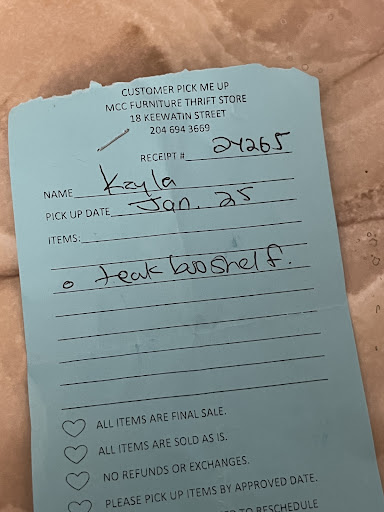 CUSTOMER PICK ME UP
MCC FURNITURE THRIFT STORE
18 KEEWATIN STREET
204 694 3669
RECEIPT # 24265
NAME Kayla
PICK UP DATE Jan. 25
ITEMS:
teak booshelf.
ALL ITEMS ARE FINAL SALE.
ALL ITEMS ARE SOLD AS IS.
NO REFUNDS OR EXCHANGES.
PLEASE PICK UP ITEMS BY APPROVED DATE.
TO RESCHEDULE